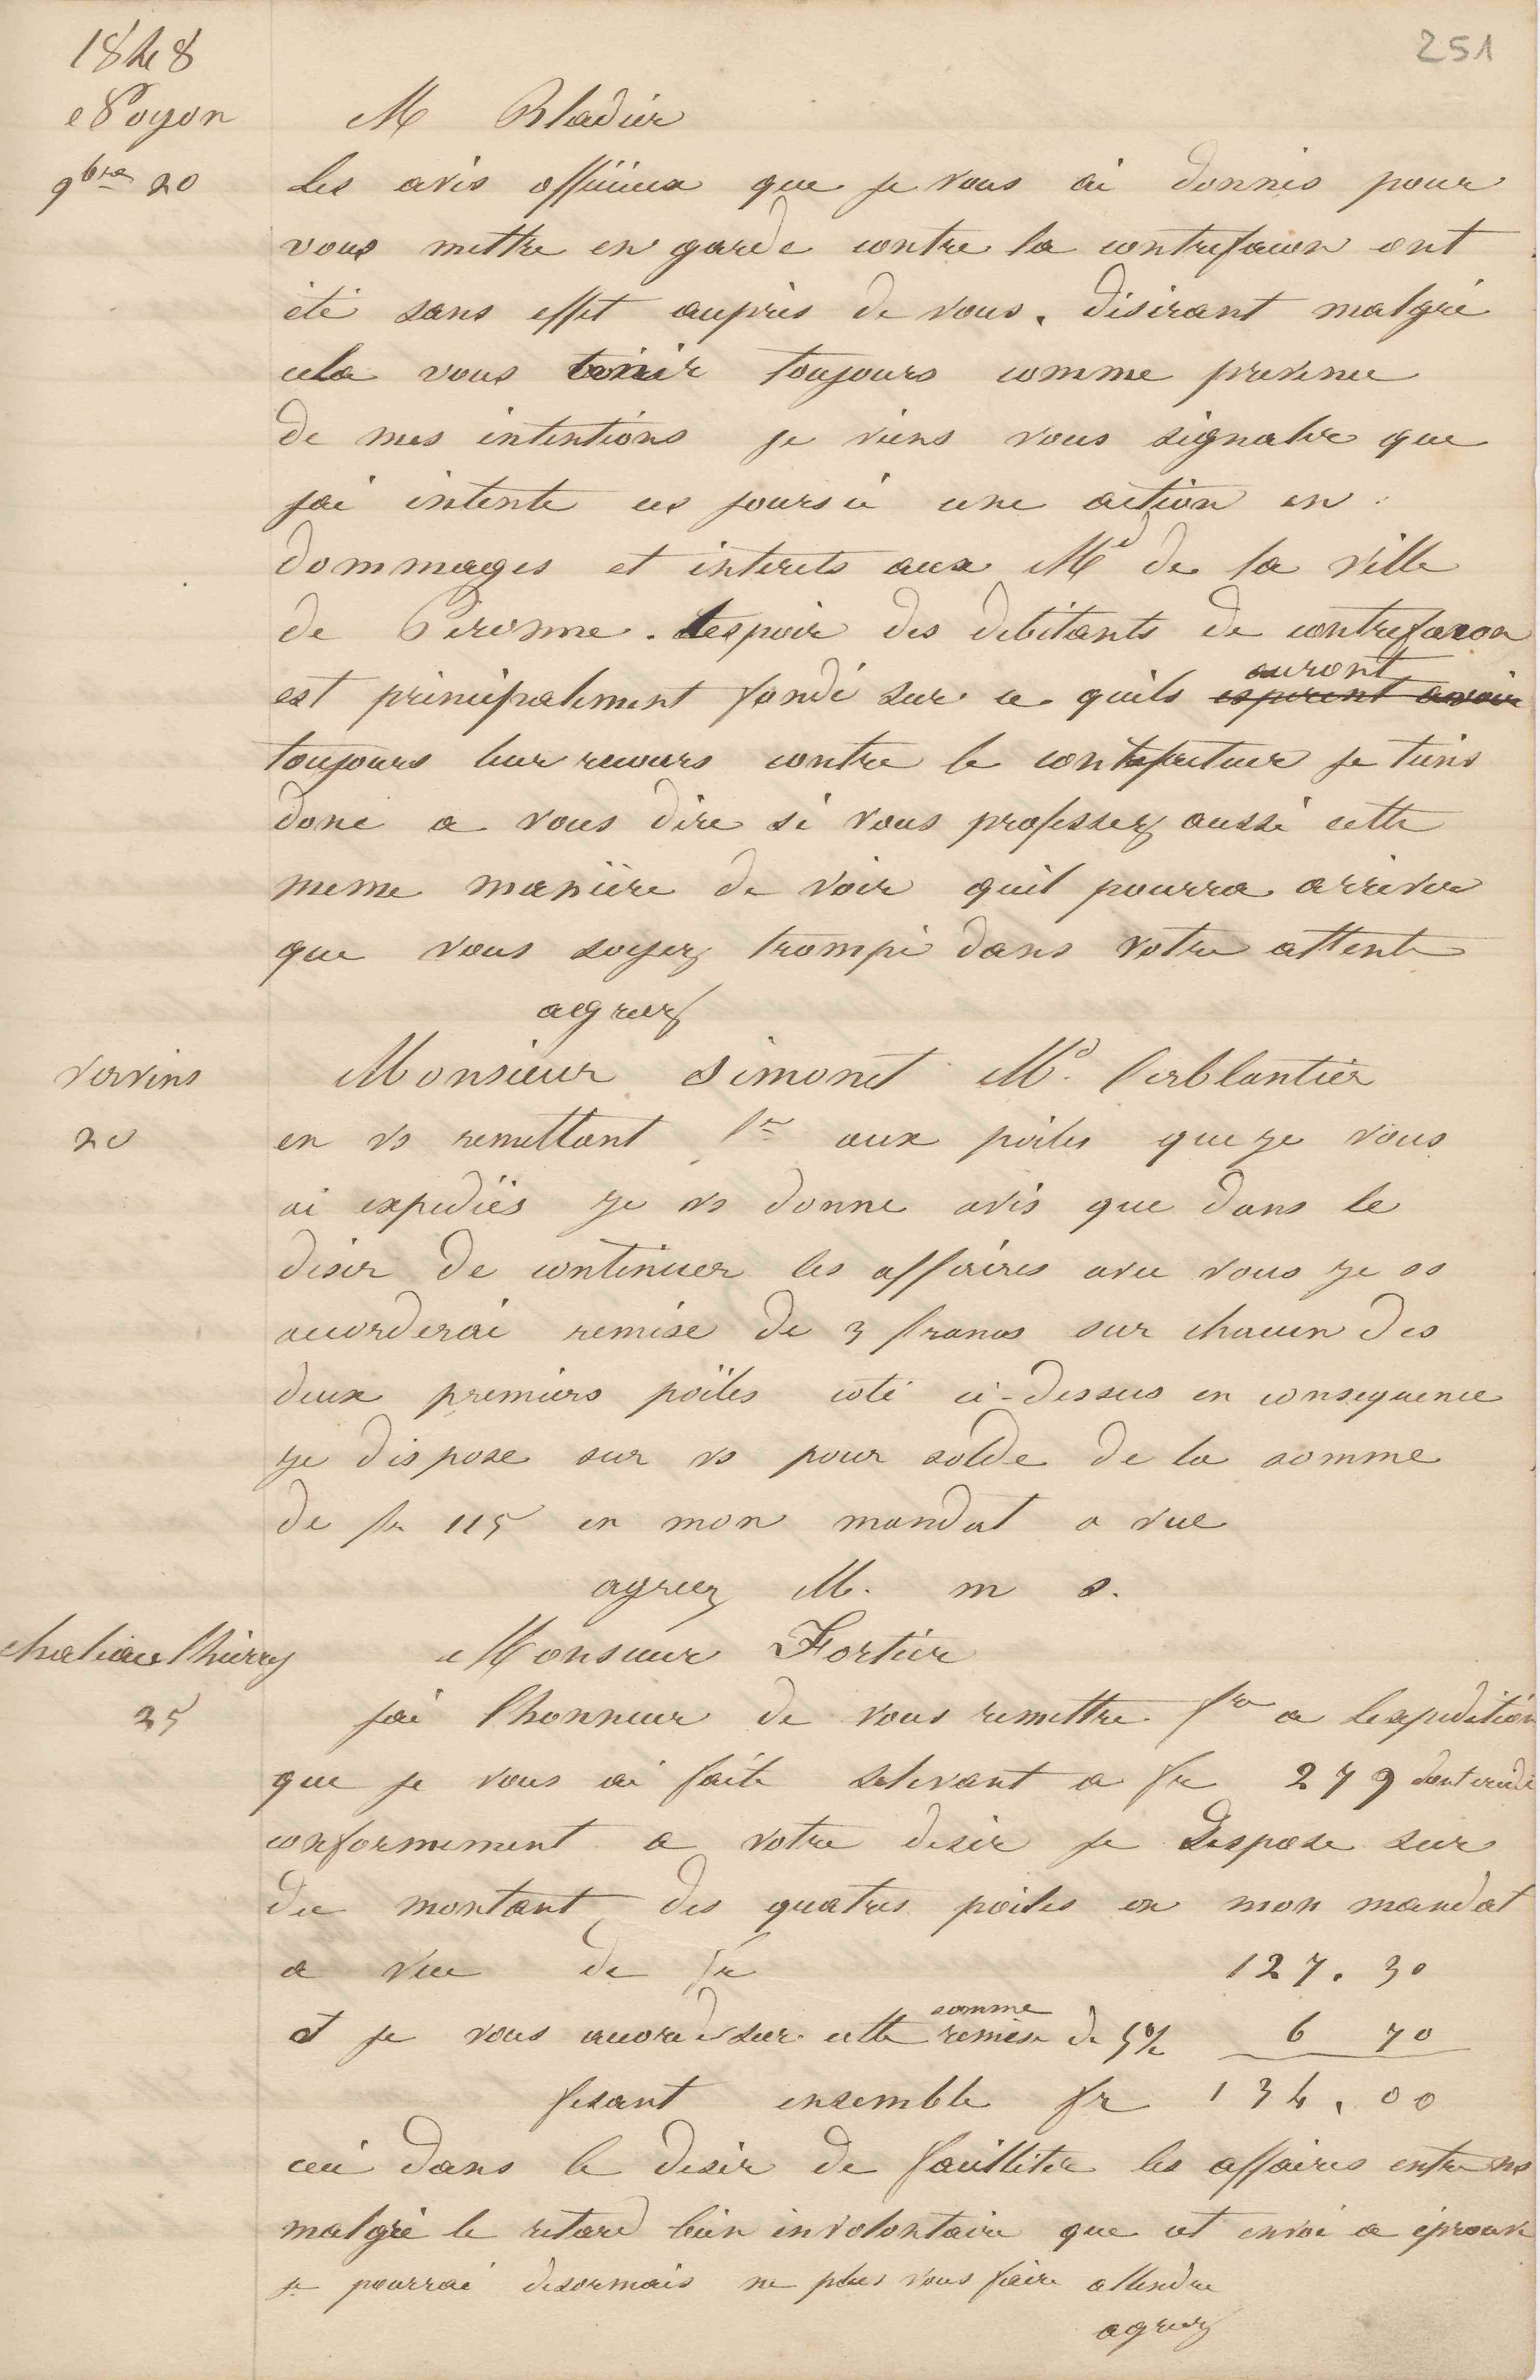 251
1848
Noyon
9bre 20
M Bladier
les avis officieux que je vous ai donnés pour
vous mettre en garde contre la contrefacon ont
été sans effet auprès de vous. désirant malgré
cela vous tenir toujours comme prevenu
de mes intentions je viens vous signaler que
jai intenté ces jours ci une action en
dommages et interets aux Md de la ville
de Péronne. Lespoir des debitants de contrefacon
est principalement fondé sur ce quils espèrent avoir auront
toujours leur recours contre le contrefacteur je tiens
donc a vous dire si vous professez aussi cette
meme manière de voir quil pourra arriver
que vous soyez trompé dans votre attente
agreez
Vervins
20
Monsieur Simonet Md ferblantier
en vs remettant fre aux poiles que je vous
ai expediés je vs donne avis que dans le
désir de continuer les affaires avec vous je vs
accorderai remise de 3 francs sur chacun des
deux premiers poîles coté ci-dessus en consequence
je dispose sur vs pour solde de la somme
de fr 115 en mon mandat a vue
agreez M. m s.
chateau thierry
25
Monsieur Fortier
jai lhonneur de vous remettre fre a lexpedition
que je vous ai faite selevant a fr 279 dont crédit
conformement a votre desir je dispose sur
du montant des quatres poiles en mon mandat
a vue de fr 127. 30
et je vous accorde sur cette somme remise de 5% 6 70
fesant ensemble fr 134. 00
ceci dans le desir de faciliter les affaires entre ns
malgré le retard bien involontaire que cet envoi a éprouvé
je pourrai desormais ne plus vous faire attendre
agreez